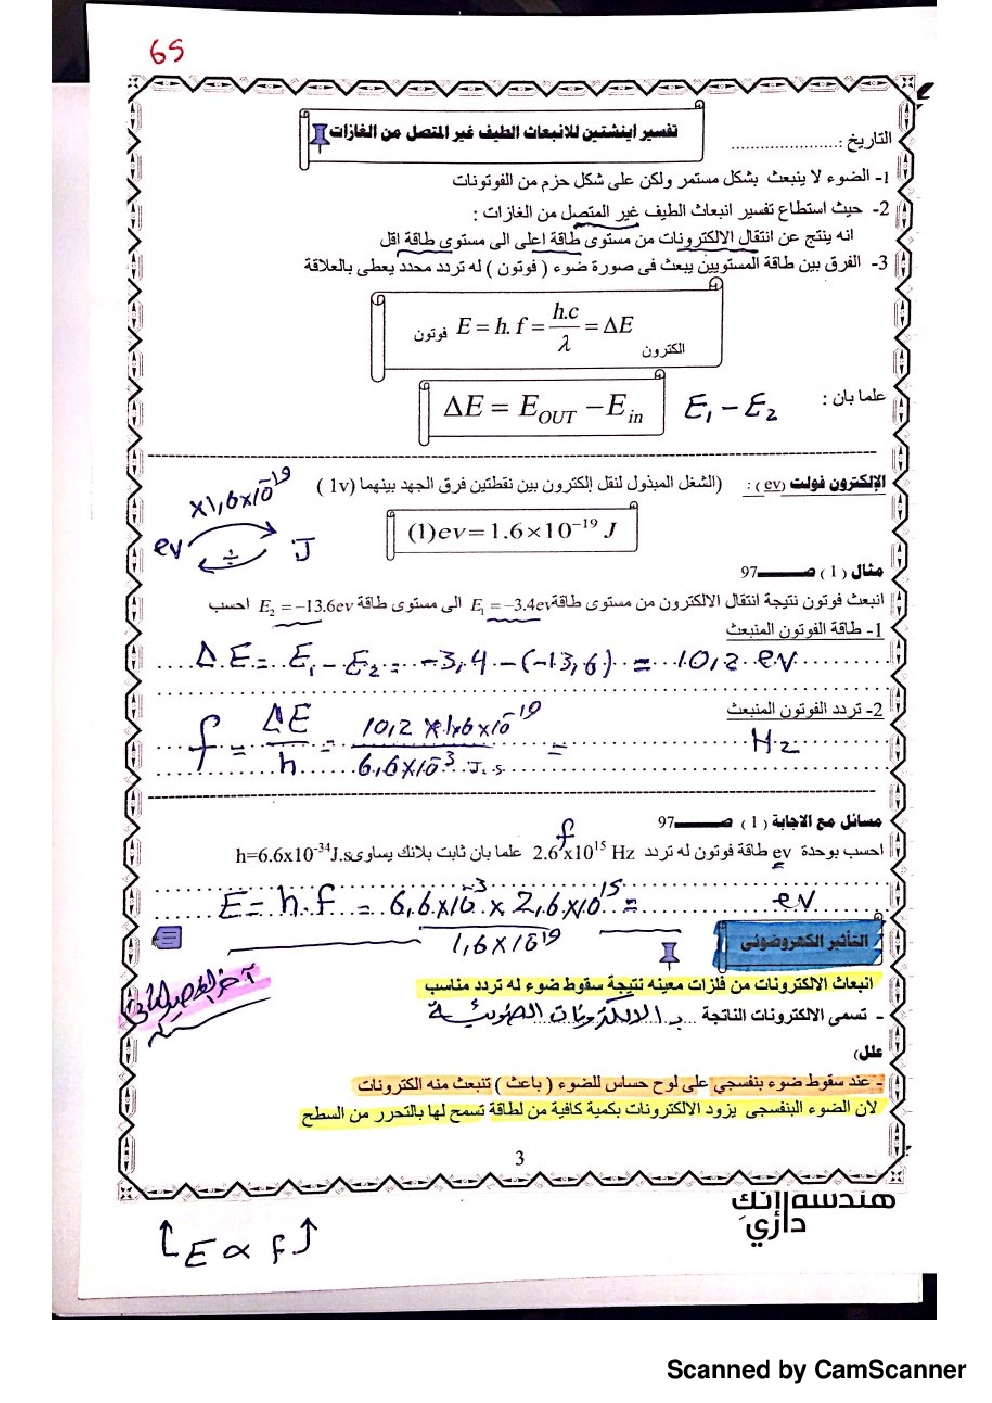 65
تفسير اينشتين للانبعاث الطيف غير المتصل من الغازات
التاريخ :......................
1- الضوء لا ينبعث بشكل مستمر ولكن على شكل حزم من الفوتونات
2- حيث استطاع تفسير انبعاث الطيف غير المتصل من الغازات :
انه ينتج عن انتقال الالكترونات من مستوى طاقة اعلى الى مستوى طاقة اقل
3- الفرق بين طاقة المستويين يبعث فى صورة ضوء ( فوتون ) له تردد محدد يعطى بالعلاقة
فوتون E = h. f = h.c / λ = ΔE الكترون
علما بان : ΔE = E OUT − E in E₁ − E₂
الإلكترون فولت (ev) : (الشغل المبذول لنقل إلكترون بين نقطتين فرق الجهد بينهما (1v )
×1,6×10⁻¹⁹
(1)ev = 1.6×10⁻¹⁹ J
ev ÷ J
مثال ( 1 ) صـــــ97
انبعث فوتون نتيجة انتقال الالكترون من مستوى طاقة E₁ = −3.4ev الى مستوى طاقة E₂ = −13.6ev احسب
1- طاقة الفوتون المنبعث
ΔE = E₁ − E₂ = −3,4 − (−13,6) = 10,2 ev
2- تردد الفوتون المنبعث
f = ΔE / h = 10,2 × 1,6×10⁻¹⁹ / 6,6×10⁻³ J.s = Hz
مسائل مع الاجابة ( 1 ) صـــــ97
f
احسب بوحدة ev طاقة فوتون له تردد 2.6x10¹⁵ Hz علما بان ثابت بلانك يساوى h=6.6x10⁻³⁴J.s
E = h.f = 6,6×10⁻³ × 2,6×10¹⁵ / 1,6×10⁻¹⁹ = ev
التأثير الكهروضوئي
انبعاث الالكترونات من فلزات معينه نتيجة سقوط ضوء له تردد مناسب
- تسمى الالكترونات الناتجة بـ الالكترونات الضوئية
علل)
- عند سقوط ضوء بنفسجي على لوح حساس للضوء ( باعث ) تنبعث منه الكترونات
لان الضوء البنفسجى يزود الالكترونات بكمية كافية من لطاقة تسمح لها بالتحرر من السطح
3
هندسه إنك
داري
↑E ∝ f↑
Scanned by CamScanner